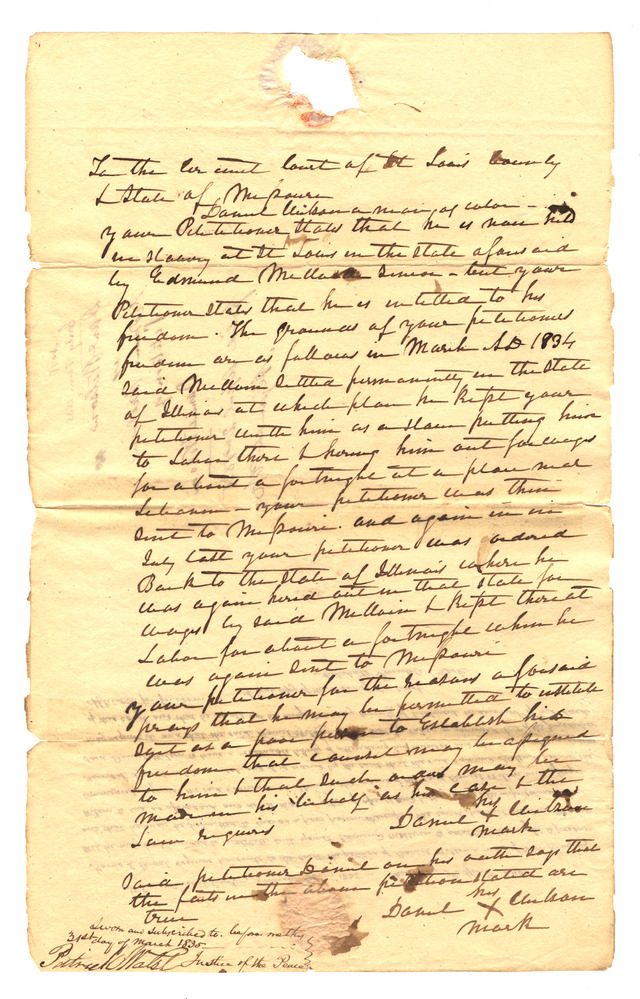 To the Circuit Court of St Louis County
& State of Missouri
Daniel Wilson a man of color -
your Petitioner States that he is now held
in slavery at St Louis in the State aforesaid
by Edmund Melvin Simon - but your
Petitioner States that he is intitled to his
freedom. The grounds of your petitioners
freedom are as follows in March AD 1834
said Melvin Settled permanently in the State
of Illinois at which place he Kept your
petitioner with him as a slave putting him
to Labor there & hiring him out for wages
for about a fortnight at a place near
Lebanon - your petitioner was then
sent to Missouri and again in in
July last your petitioner was ordered
Back to the State of Illinois where he
was again hired out in that State for
wages by said Melvin & Kept there at
Labor for about a fortnight when he
was again sent to Missouri
your petitioner for the reasons aforesaid
prays that he may be permitted to institute
Suit as a poor person to Establish his
freedom that counsel may be assigned
to him & that such order may be
made in his behalf as his case & the
Law requires
his
Daniel X Wilson
mark
Said petitioner Daniel on his oath says that
the facts in the above petition stated are
true
his
Daniel X Wilson
mark
Sworn and subscribed to before me this
31st day of March 1835
Patrick Walsh Justice of the Peace